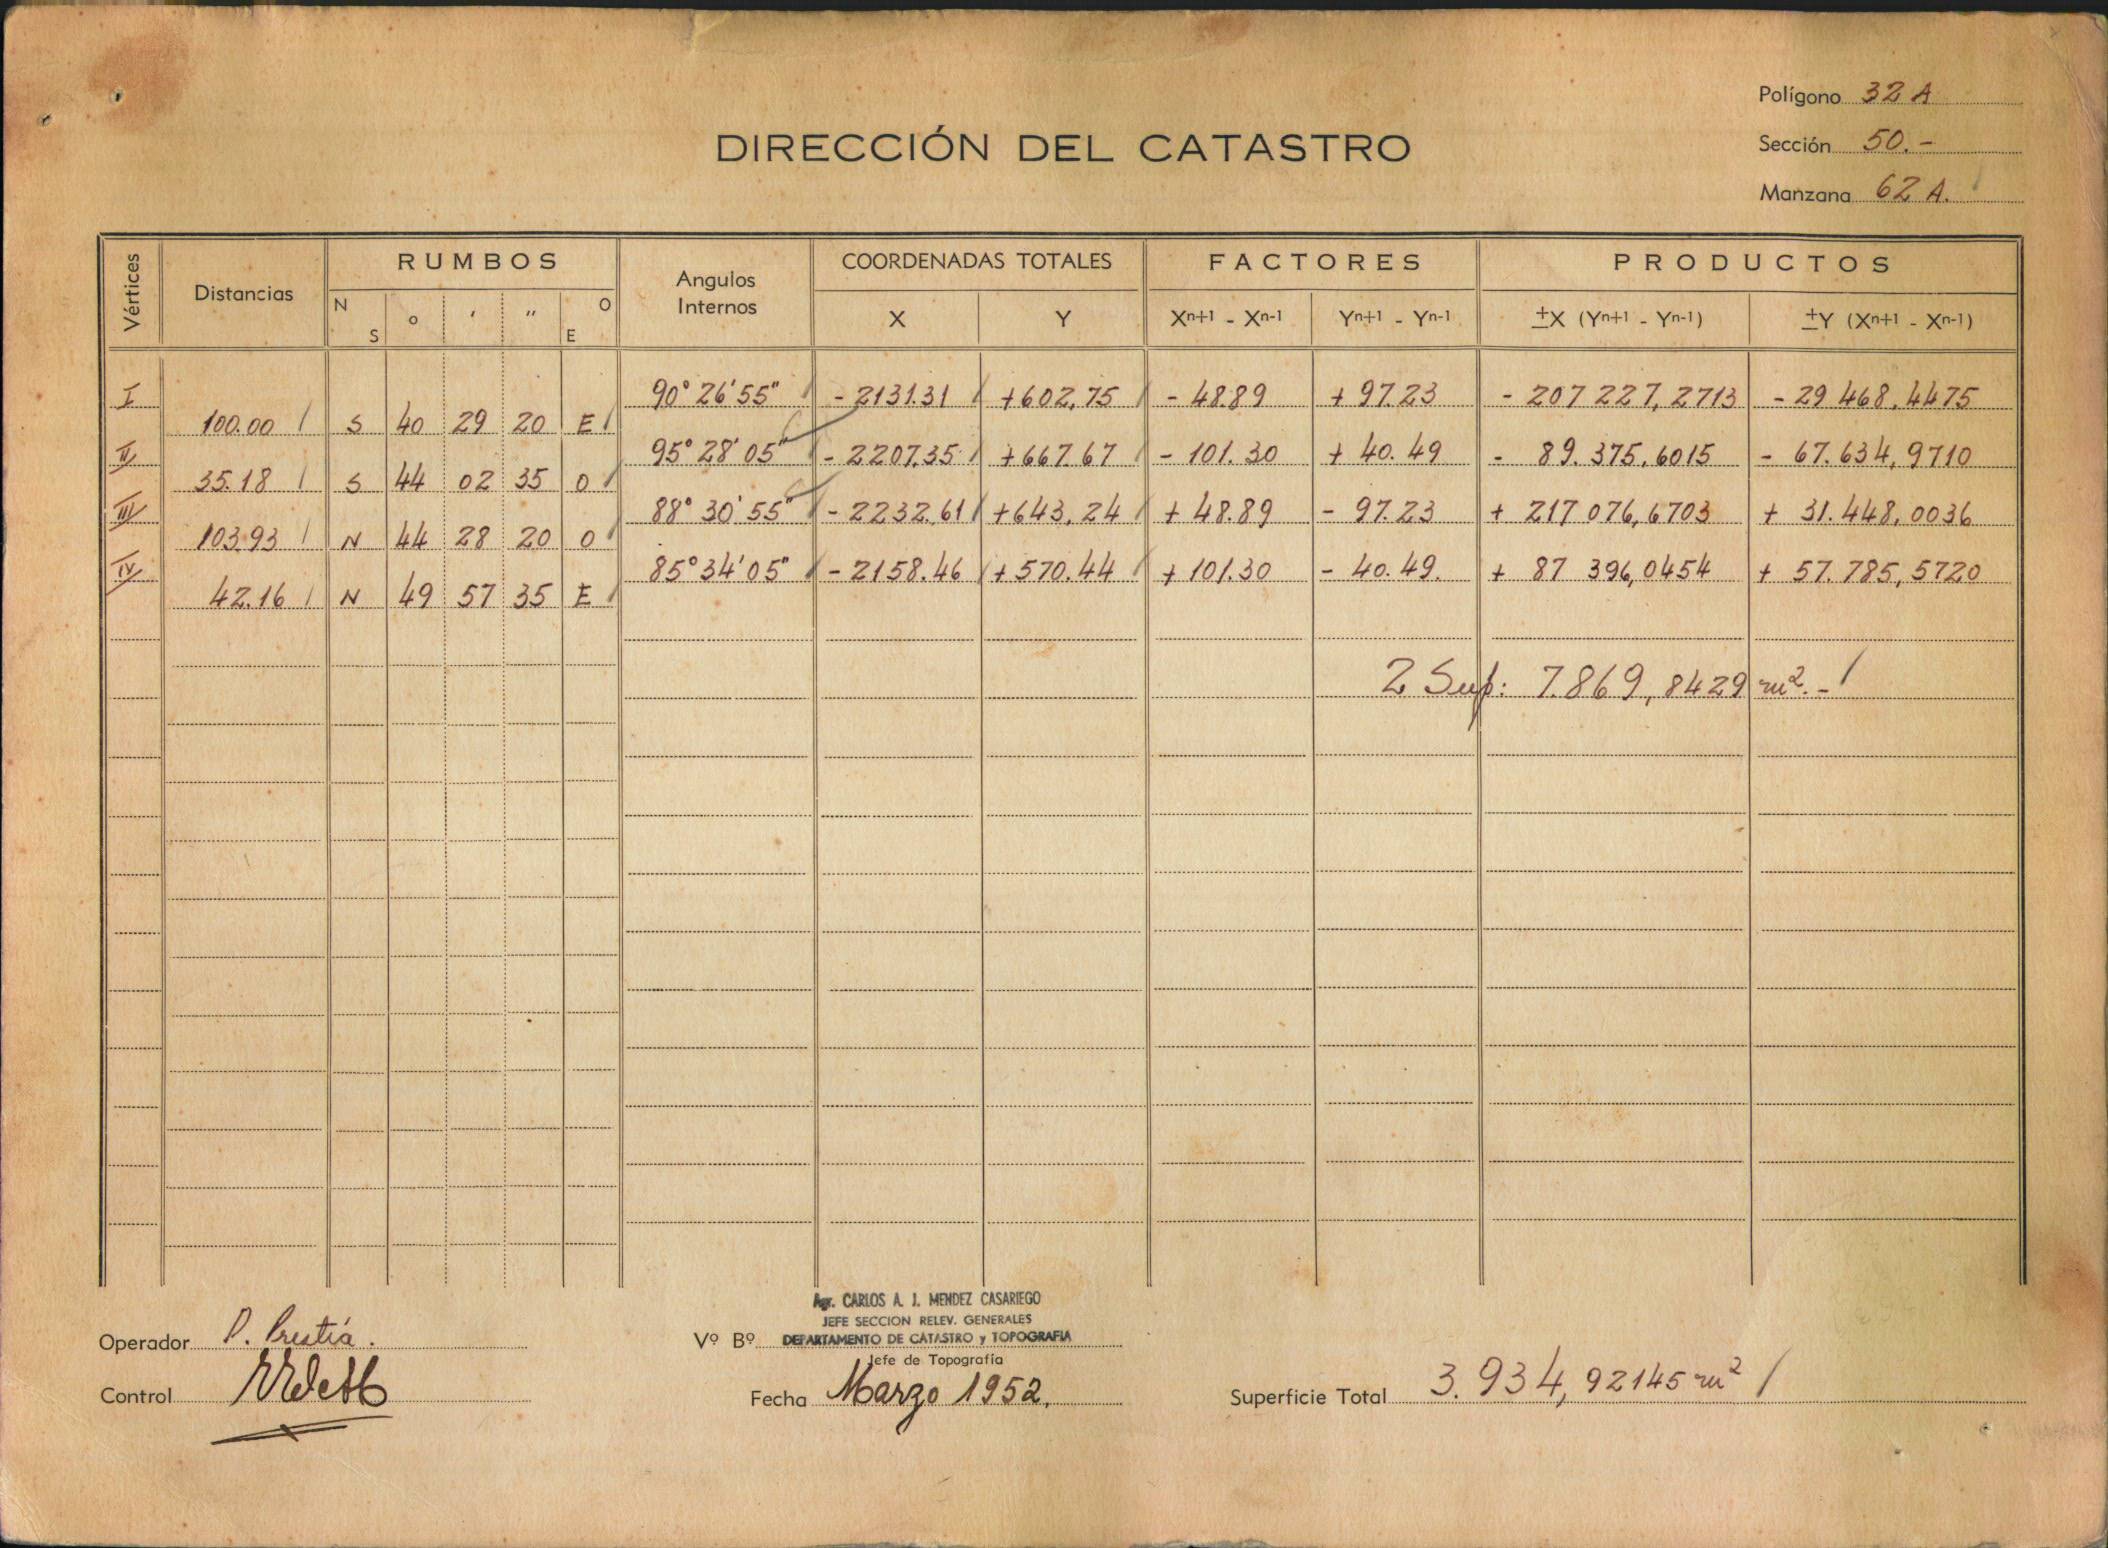 Polígono 32 A
Sección 50.-
Manzana 62 A.
DIRECCIÓN DEL CATASTRO
Vértices Distancias RUMBOS Angulos Internos COORDENADAS TOTALES FACTORES PRODUCTOS
N S ° ' " O E X Y Xn+1 - Xn-1 Yn+1 - Yn-1 ±X (Yn+1 - Yn-1) ±Y (Xn+1 - Xn-1)
I 90° 26' 55" - 2131.31 +602,75 - 48.89 + 97.23 - 207 227,2713 - 29 468,4475
100.00 S 40 29 20 E
II 95° 28' 05" - 2207.35 +667.67 - 101.30 + 40.49 - 89.375,6015 - 67.634,9710
35.18 S 44 02 35 O
III 88° 30' 55" - 2232,61 +643,24 + 48.89 - 97.23 + 217 076,6703 + 31.448,0036
103.93 N 44 28 20 O
IV 85° 34' 05" - 2158.46 +570.44 + 101.30 - 40.49. + 87 396,0454 + 57.785,5720
42.16 N 49 57 35 E
2 Sup: 7.869,8429 m². -
Agr. CARLOS A. J. MENDEZ CASARIEGO
JEFE SECCION RELEV. GENERALES
Operador P. Prestía. Vº Bº DEPARTAMENTO DE CATASTRO y TOPOGRAFIA
Jefe de Topografía
Control Fecha Marzo 1952. Superficie Total 3.934,92145 m²